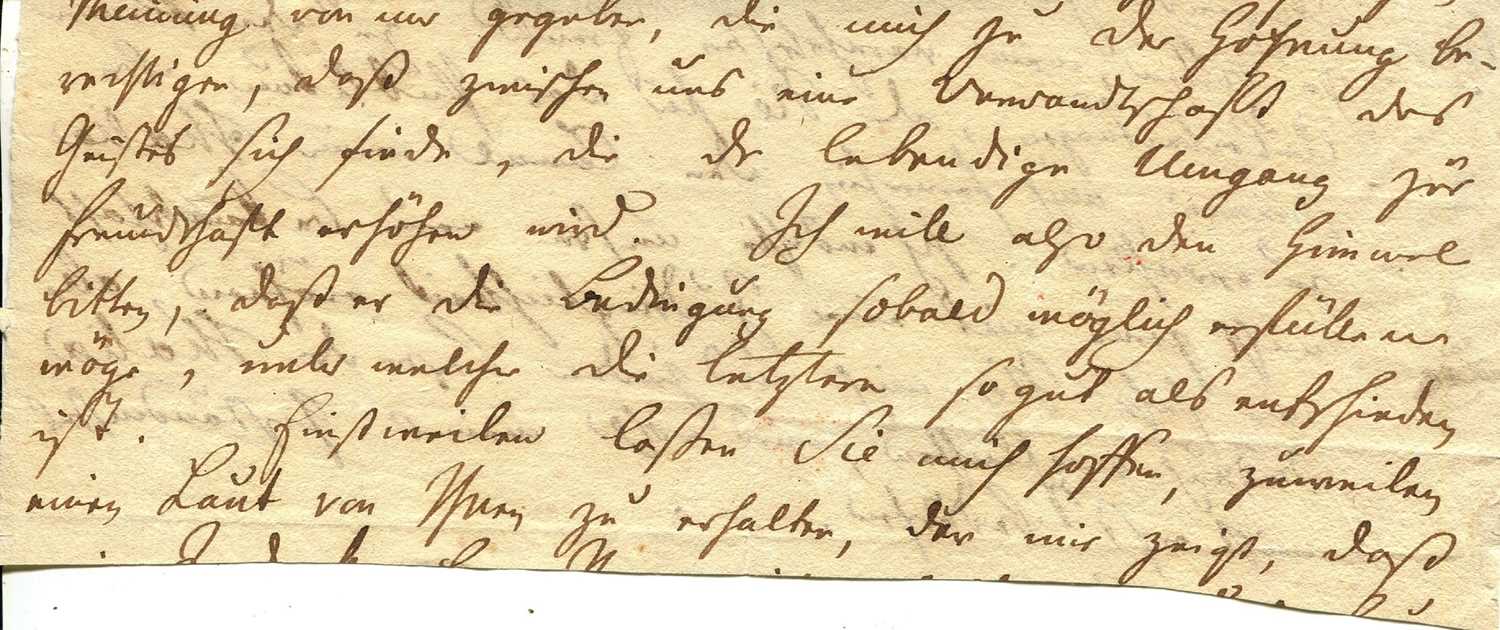 Meinung von mir gegeben, die mich zu der Hofnung be-
rechtigen, daß zwischen uns eine Verwandtschaft des
Geistes sich finde, die der lebendige Umgang zur
Freundschaft erhöhen wird. Ich will also den Himmel
bitten, daß er die Bedingung sobald möglich erfüllen
möge, unter welcher die letztere so gut als entschieden
ist. Einstweilen laßen Sie mich hoffen, zuweilen
einen Laut von Ihnen zu erhalten, der mir zeigt, daß